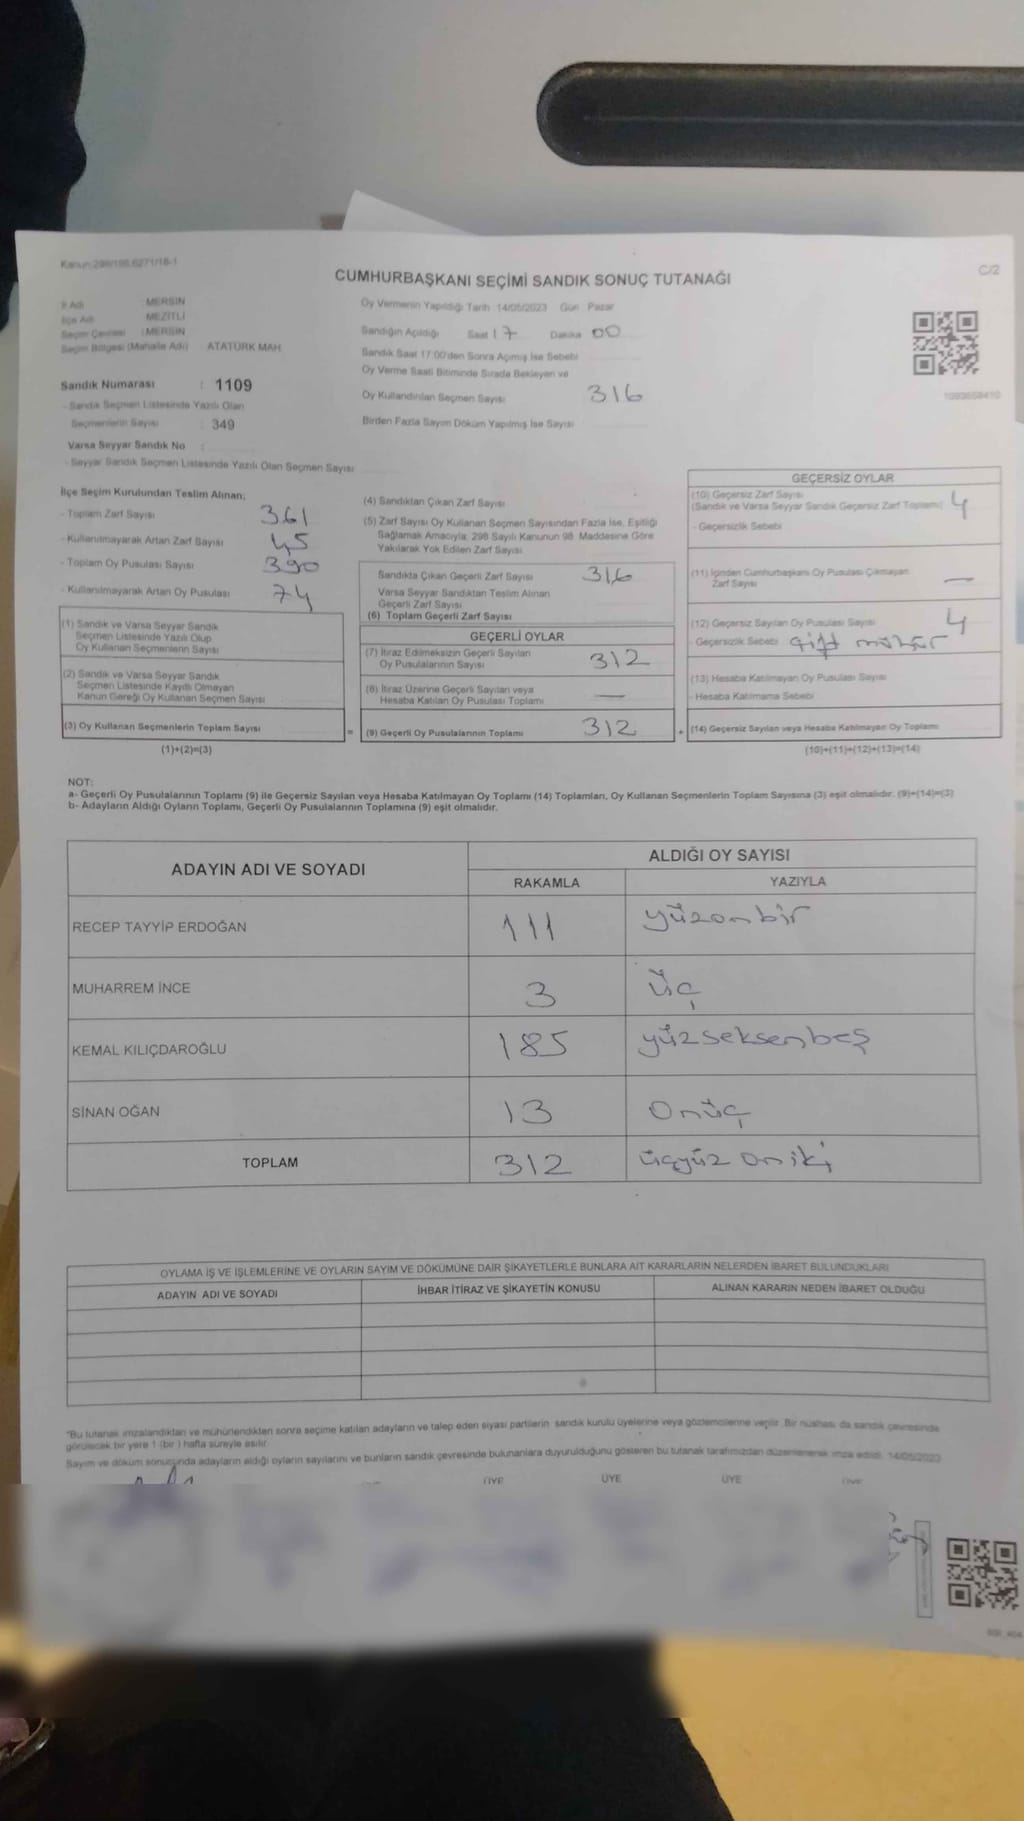 Kanun:298/100,6271/18-1
C/2
CUMHURBAŞKANI SEÇİMİ SANDIK SONUÇ TUTANAĞI
İl Adı : MERSİN
İlçe Adı : MEZİTLİ
Seçim Çevresi : MERSİN
Seçim Bölgesi (Mahalle Adı) ATATÜRK MAH
Sandık Numarası : 1109
- Sandık Seçmen Listesinde Yazılı Olan
Seçmenlerin Sayısı : 349
Varsa Seyyar Sandık No :
- Seyyar Sandık Seçmen Listesinde Yazılı Olan Seçmen Sayısı
Oy Vermenin Yapıldığı Tarih :14/05/2023 Gün : Pazar
Sandığın Açıldığı Saat 17 Dakika 00
Sandık Saat 17:00'den Sonra Açımış İse Sebebi
Oy Verme Saati Bitiminde Sırada Bekleyen ve
Oy Kullandırılan Seçmen Sayısı 316
Birden Fazla Sayım Döküm Yapılmış İse Sayısı
İlçe Seçim Kurulundan Teslim Alınan;
- Toplam Zarf Sayısı 361
- Kullanılmayarak Artan Zarf Sayısı 45
- Toplam Oy Pusulası Sayısı 390
- Kullanılmayarak Artan Oy Pusulası 74
(1) Sandık ve Varsa Seyyar Sandık
Seçmen Listesinde Yazılı Olup
Oy Kullanan Seçmenlerin Sayısı
(2) Sandık ve Varsa Seyyar Sandık
Seçmen Listesinde Kayıtlı Olmayan
Kanun Gereği Oy Kullanan Seçmen Sayısı
(3) Oy Kullanan Seçmenlerin Toplam Sayısı =
(1)+(2)=(3)
(4) Sandıktan Çıkan Zarf Sayısı
(5) Zarf Sayısı Oy Kullanan Seçmen Sayısından Fazla İse, Eşitliği
Sağlamak Amacıyla; 298 Sayılı Kanunun 98. Maddesine Göre
Yakılarak Yok Edilen Zarf Sayısı
Sandıkta Çıkan Geçerli Zarf Sayısı 316
Varsa Seyyar Sandıktan Teslim Alınan
Geçerli Zarf Sayısı
(6) Toplam Geçerli Zarf Sayısı
GEÇERLİ OYLAR
(7) İtiraz Edilmeksizin Geçerli Sayılan
Oy Pusulalarının Sayısı 312
(8) İtiraz Üzerine Geçerli Sayılan veya
Hesaba Katılan Oy Pusulası Toplamı —
(9) Geçerli Oy Pusulalarının Toplamı 312 +
GEÇERSİZ OYLAR
(10) Geçersiz Zarf Sayısı
(Sandık ve Varsa Seyyar Sandık Geçersiz Zarf Toplamı) 4
- Geçersizlik Sebebi
(11) İçinden Cumhurbaşkanı Oy Pusulası Çıkmayan
Zarf Sayısı —
(12) Geçersiz Sayılan Oy Pusulası Sayısı 4
- Geçersizlik Sebebi çift mühür
(13) Hesaba Katılmayan Oy Pusulası Sayısı
- Hesaba Katılmama Sebebi
(14) Geçersiz Sayılan veya Hesaba Katılmayan Oy Toplamı
(10)+(11)+(12)+(13)=(14)
NOT:
a- Geçerli Oy Pusulalarının Toplamı (9) ile Geçersiz Sayılan veya Hesaba Katılmayan Oy Toplamı (14) Toplamları, Oy Kullanan Seçmenlerin Toplam Sayısına (3) eşit olmalıdır. (9)+(14)=(3)
b- Adayların Aldığı Oyların Toplamı, Geçerli Oy Pusulalarının Toplamına (9) eşit olmalıdır.
ADAYIN ADI VE SOYADI
ALDIĞI OY SAYISI
RAKAMLA YAZIYLA
RECEP TAYYİP ERDOĞAN 111 yüzonbir
MUHARREM İNCE 3 üç
KEMAL KILIÇDAROĞLU 185 yüzseksenbeş
SİNAN OĞAN 13 Onüç
TOPLAM 312 üçyüz oniki
OYLAMA İŞ VE İŞLEMLERİNE VE OYLARIN SAYIM VE DÖKÜMÜNE DAİR ŞİKAYETLERLE BUNLARA AİT KARARLARIN NELERDEN İBARET BULUNDUKLARI
ADAYIN ADI VE SOYADI İHBAR İTİRAZ VE ŞİKAYETİN KONUSU ALINAN KARARIN NEDEN İBARET OLDUĞU
"Bu tutanak imzalandıktan ve mühürlendikten sonra seçime katılan adayların ve talep eden siyasi partilerin sandık kurulu üyelerine veya gözlemcilerine verilir. Bir nüshası da sandık çevresinde
görülecek bir yere 1 (bir ) hafta süreyle asılır.
Sayım ve döküm sonucunda adayların aldığı oyların sayılarını ve bunların sandık çevresinde bulunanlara duyurulduğunu gösteren bu tutanak tarafımızdan düzenlenerek imza edildi. 14/05/2023
ÜYE ÜYE ÜYE ÜYE